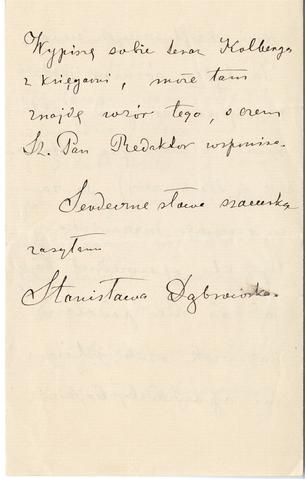 Wypiszę sobie teraz Kolberga
z księgarni, może tam
znajdę wzór tego, o czem
Sz. Pan Redaktor wspomina.
Serdeczne słowa szacunku
zasyłam
Stanisława Dąbrowska.